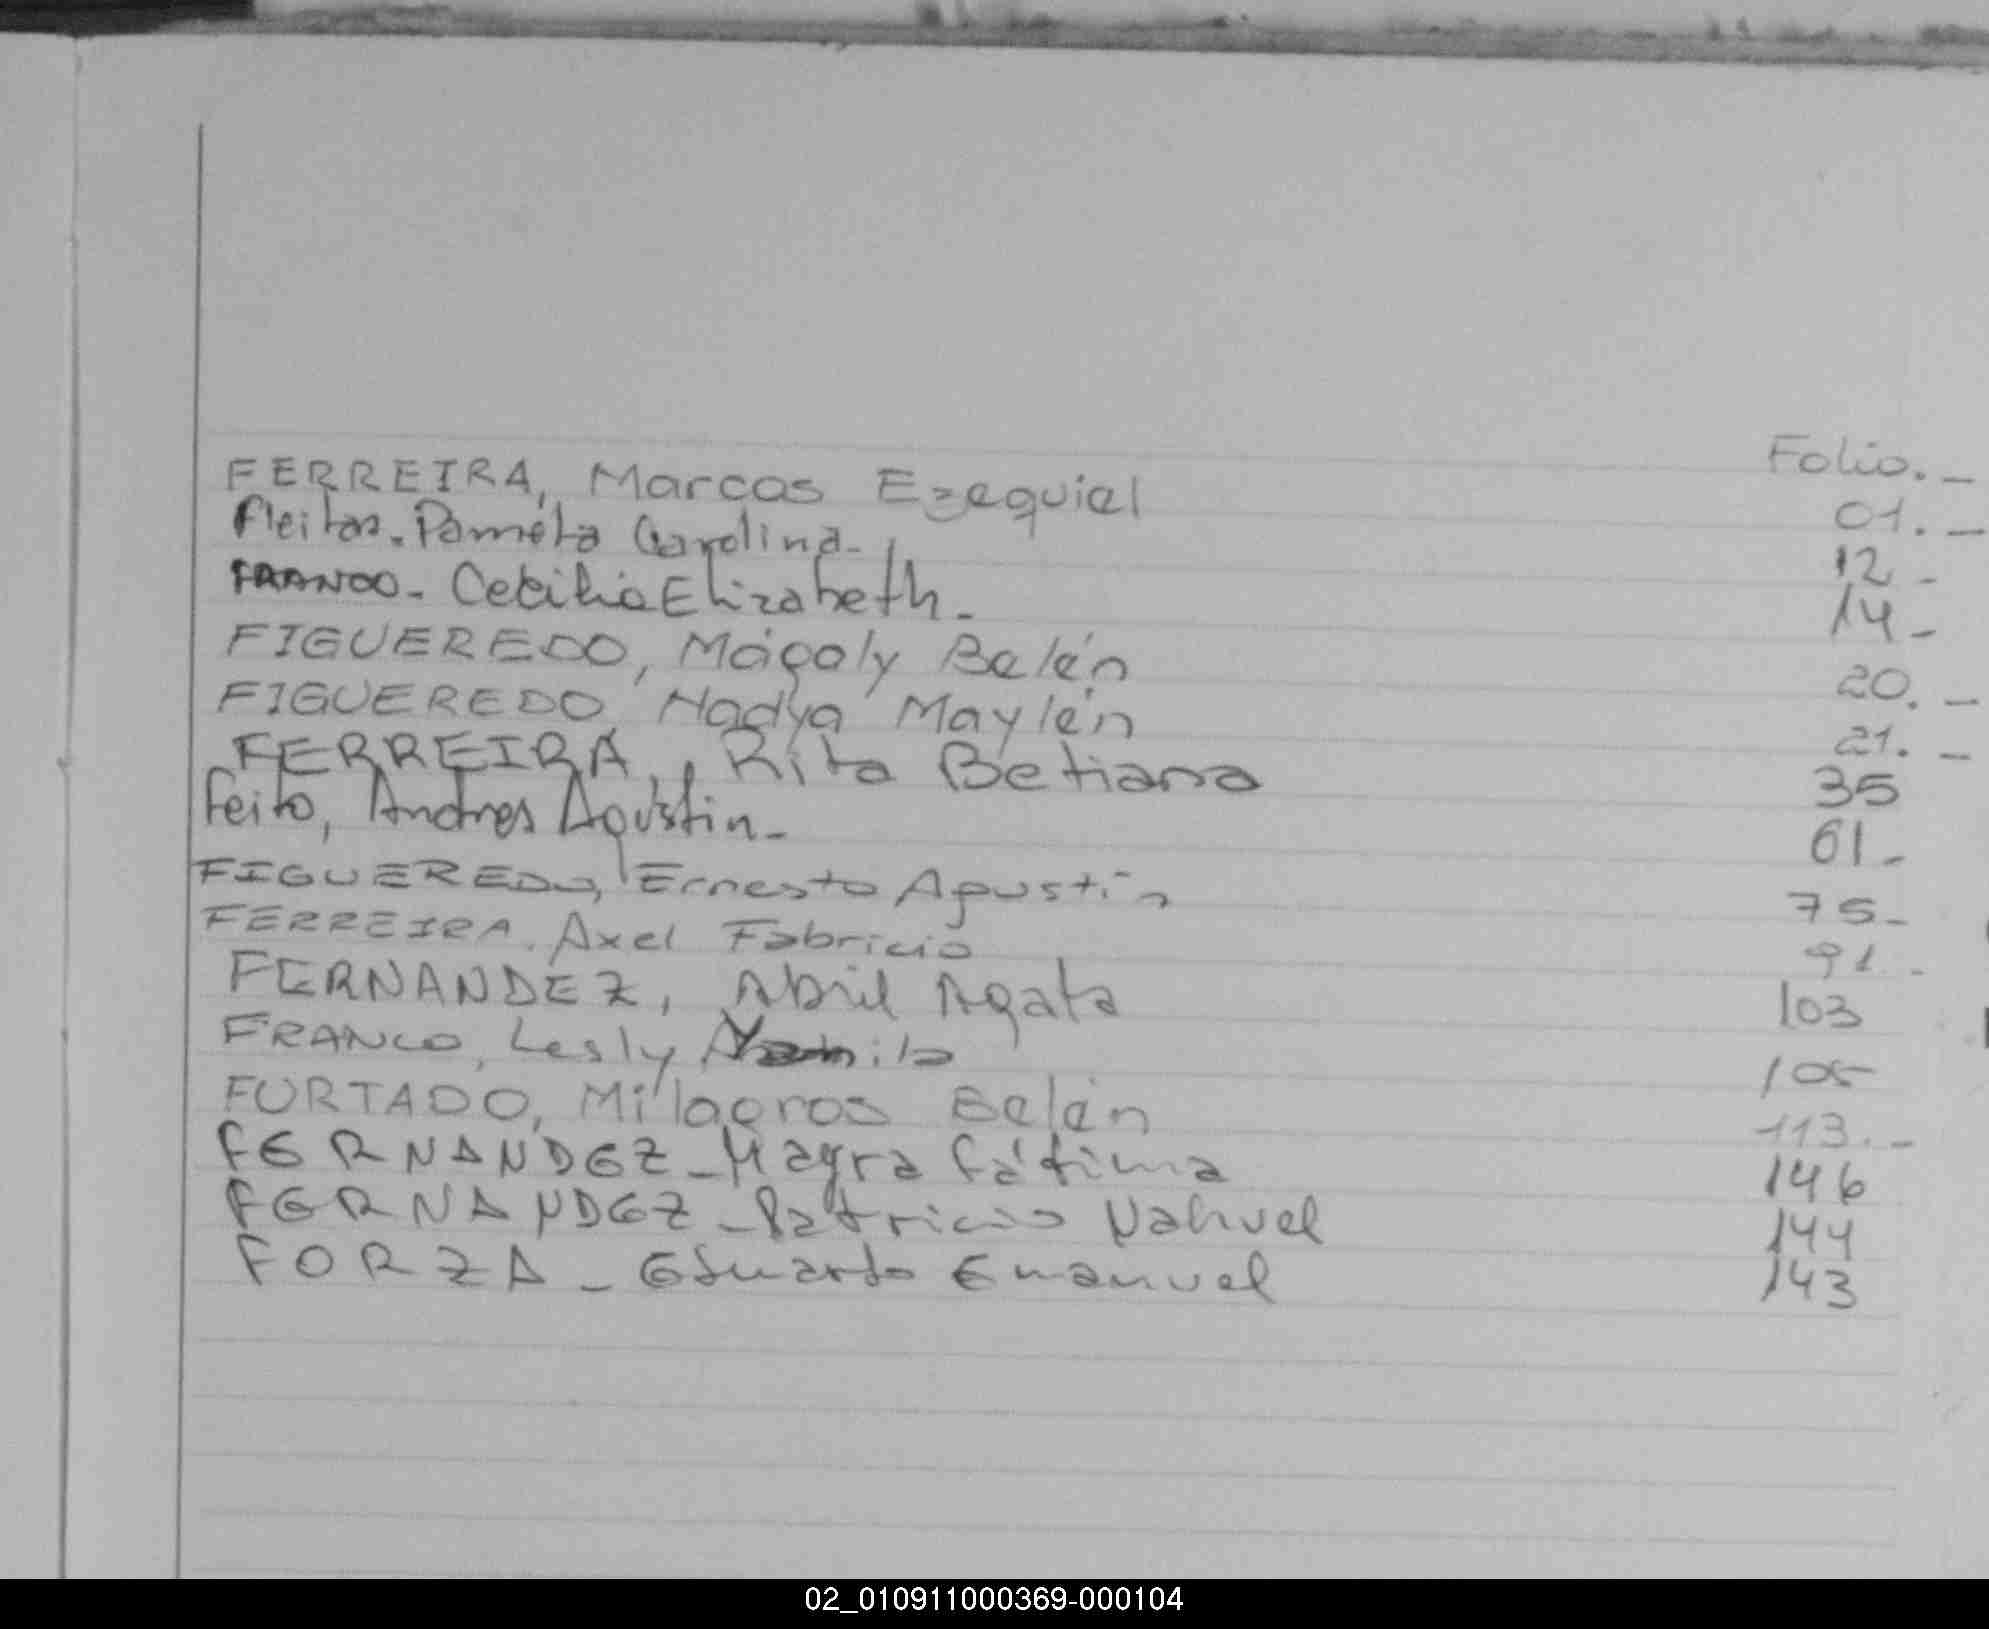 Folio._
FERREIRA, Marcos Ezequiel 01._
Fleitas. Pamela Carolina- 12-
FRANCO- Cecilia Elizabeth- 14-
FIGUEREDO, Mágaly Belén 20._
FIGUEREDO, Nadya Maylén 21._
FERREIRA, Rita Betiana 35
Feito, Andres Agustin- 61-
FIGUEREDO, Ernesto Agustín 75-
FERREIRA, Axel Fabricio 91-
FERNANDEZ, Abril Agata 103
FRANCO, Lesly 105
FURTADO, Milagros Belén 113.-
FERNANDEZ-Mayra Fátima 146
FERNANDEZ-Patricio Nahuel 144
FORZA- Eduardo Emanuel 143
02_010911000369-000104